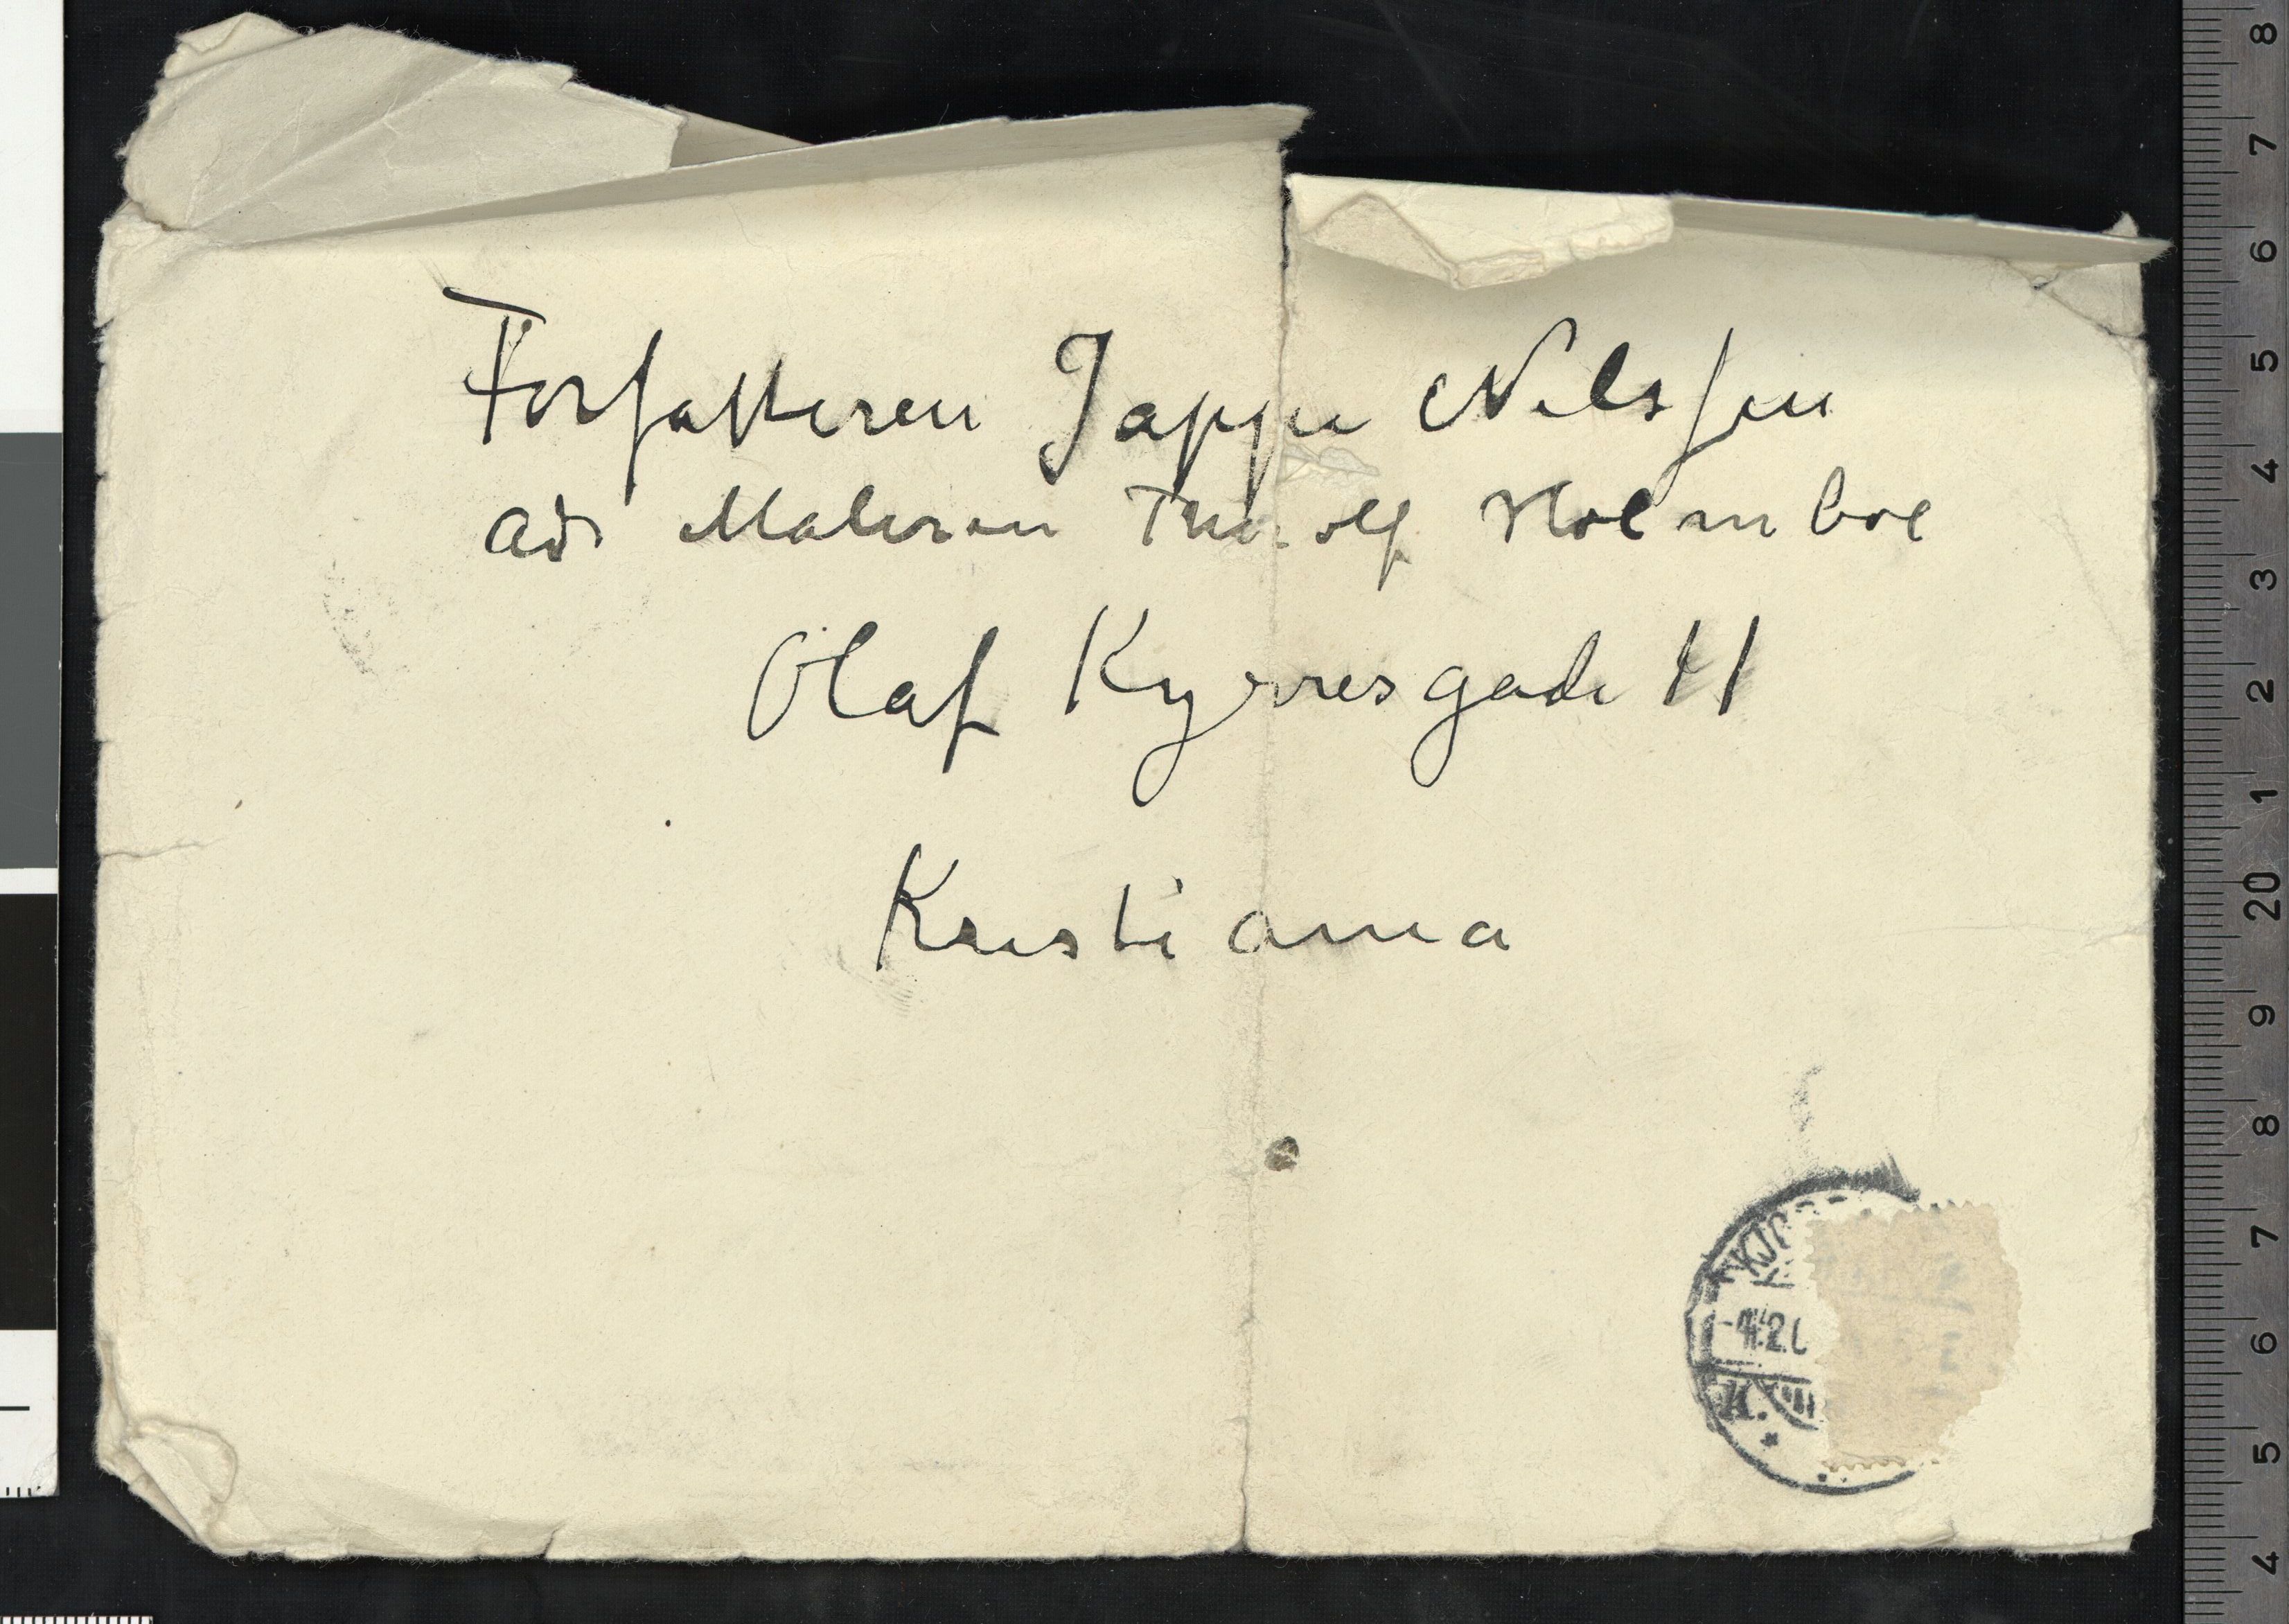 Forfatteren Jappe Nilssen
ad Maleren Thorolf Holmboe
Olaf Kyrresgade 11
Kristiania
K.
8
7
6
5
4
3
2
1
20
9
8
7
6
5
4